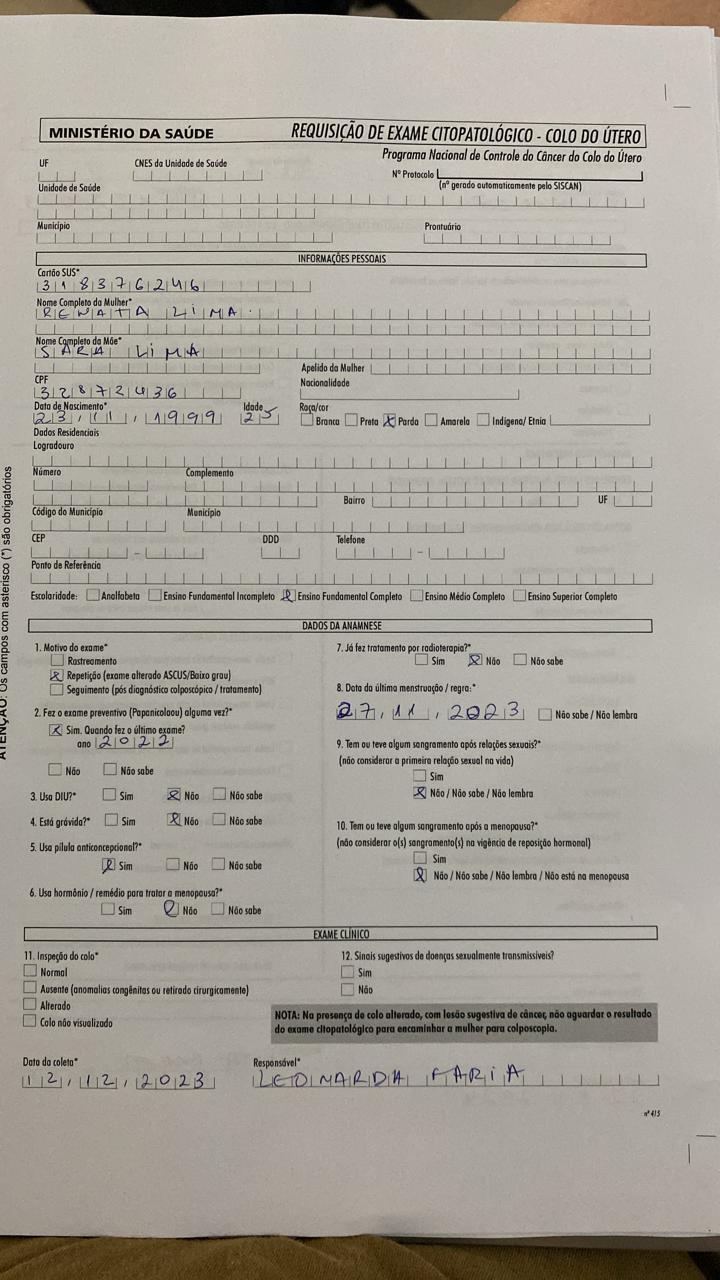 MINISTÉRIO DA SAÚDE
REQUISIÇÃO DE EXAME CITOPATOLÓGICO - COLO DO ÚTERO
Programa Nacional de Controle do Câncer do Colo do Útero
UF CNES da Unidade de Saúde
Nº Protocolo
(nº gerado automaticamente pelo SISCAN)
Unidade de Saúde
Município Prontuário
INFORMAÇÕES PESSOAIS
Cartão SUS*
318376246
Nome Completo da Mulher*
RENATA LIMA
Nome Completo da Mãe*
SARA LIMA
Apelido da Mulher
CPF Nacionalidade
32872436
Data de Nascimento* Idade Raça/cor
23, 11, 1999 25 Branca Preta X Parda Amarela Indígena/ Etnia
Dados Residenciais
Logradouro
Número Complemento
Bairro UF
Código do Município Município
CEP DDD Telefone
Ponto de Referência
Escolaridade: Analfabeta Ensino Fundamental Incompleto Ensino Fundamental Completo Ensino Médio Completo Ensino Superior Completo
DADOS DA ANAMNESE
1. Motivo do exame*
Rastreamento
Repetição (exame alterado ASCUS/Baixo grau)
Seguimento (pós diagnóstico colposcópico / tratamento)
2. Fez o exame preventivo (Papanicolaou) alguma vez?*
X Sim. Quando fez o último exame?
ano 2022
Não Não sabe
3. Usa DIU?* Sim Não Não sabe
4. Está grávida?* Sim Não Não sabe
5. Usa pílula anticoncepcional?*
Sim Não Não sabe
6. Usa hormônio / remédio para tratar a menopausa?*
Sim Não Não sabe
7. Já fez tratamento por radioterapia?*
Sim Não Não sabe
8. Data da última menstruação / regra:*
27, 11, 2023 Não sabe / Não lembra
9. Tem ou teve algum sangramento após relações sexuais?*
(não considerar a primeira relação sexual na vida)
Sim
Não / Não sabe / Não lembra
10. Tem ou teve algum sangramento após a menopausa?*
(não considerar o(s) sangramento(s) na vigência de reposição hormonal)
Sim
Não / Não sabe / Não lembra / Não está na menopausa
EXAME CLÍNICO
11. Inspeção do colo*
Normal
Ausente (anomalias congênitas ou retirado cirurgicamente)
Alterado
Colo não visualizado
12. Sinais sugestivos de doenças sexualmente transmissíveis?
Sim
Não
NOTA: Na presença de colo alterado, com lesão sugestiva de câncer, não aguardar o resultado
do exame citopatológico para encaminhar a mulher para colposcopia.
Data da coleta* Responsável*
12, 12, 2023 LEONARDA FARIA
nº 415
ATENÇÃO: Os campos com asterisco (*) são obrigatórios